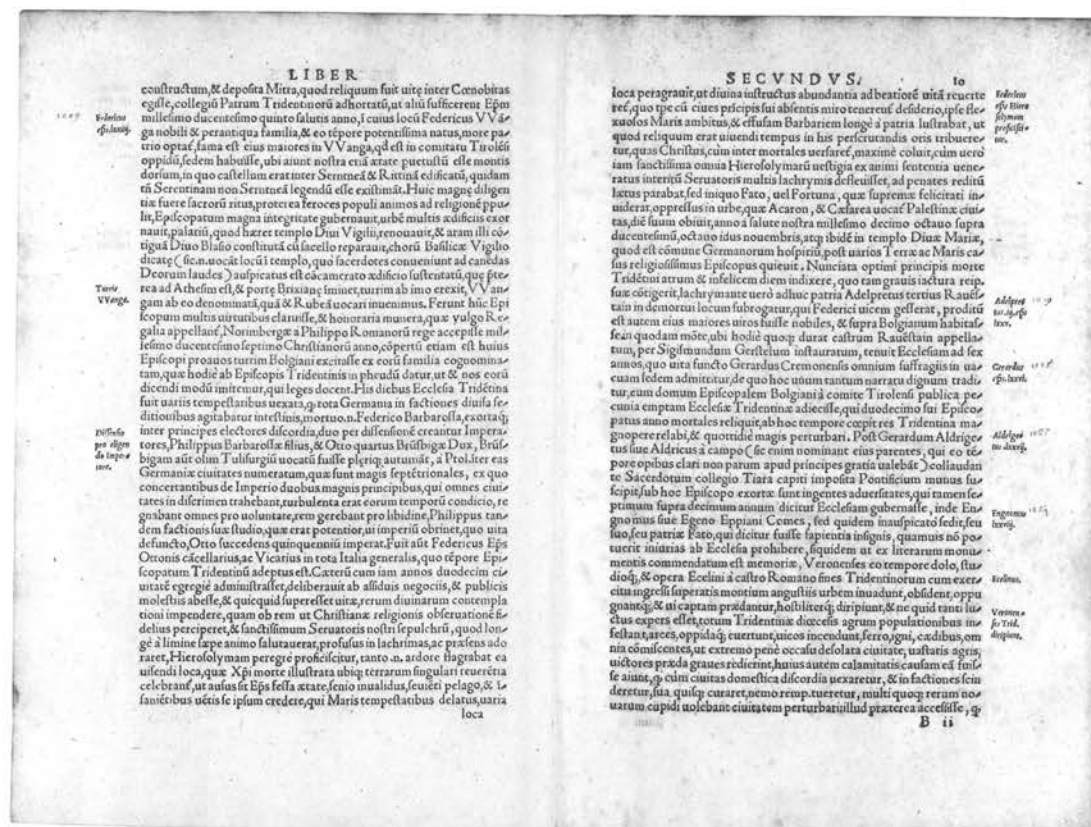 LIBER
constructum,& deposita Mitra,quod reliquum fuit uitę inter Cœnobitas
egisse,collegiũ Patrum Tridentinorũ adhortatũ,ut aliũ sufficerent Epm̃
millesimo ducentesimo quinto salutis anno, I cuius locũ Federicus VVã
ga nobili & perantiqua familia,& eo tẽpore potentissima natus,more pa
trio optat̃,fama est eius maiores in VVanga,qđ est in comitatu Tirolẽsi
oppidũ,sedem habuisse,ubi aiunt nostra etiã ætate puetustũ esse montis
dorsum,in quo castellum erat inter Serntneã & Rittinã edificatũ, quidam
tñ Serentinam non Serntneã legendũ esse existimãt.Huic magnę diligen
tiæ fuere sacrorũ ritus,proterea feroces populi animos ad religionẽ ppu
lit,Episcopatum magna integritate gubernauit,urbẽ multis ædificiis exor
nauit,palatiũ,quod hæret templo Diui Vigilii,renouauit,& aram illi cõ
tiguã Diuo Blasio constitutã cũ sacello reparauit,chorũ Basilicæ Vigilio
dicatę ( sic.n.uocãt locũ i templo, quo sacerdotes conueniunt ad canẽdas
Deorum laudes ) auspicatus est cõcamerato ædificio sustentatũ,que p̃te-
rea ad Athesim est,& portę Brixianę iminet,turim ab imo erexit,VVan-
gam ab eo denommatã,quã & Rubeã uocari inuenimus. Ferunt hũc Epi
scopum multis uirtutibus claruisse,& honoraria munera,quæ vulgo Re-
galia appellant̃, Norimbergæ a Philippo Romanorũ rege accepisse mil-
lesimo ducentesimo septimo Christianorũ anno,cõpertũ etiam est huius
Episcopi proauos turrim Bolgiani excitasse ex eorũ familia cognomina-
tam,quæ hodiè ab Episcopis Tridentinis in pheudũ datur,ut & nos eorũ
dicendi modũ imitemur,qui leges docent.His diebus Ecclesia Tridẽtina
fuit uariis tempestatibus uexata,q̃ tota Germania in factiones diuisa se-
ditionibus agitabatur intestinis,mortuo.n.Federico Barbarossa,exortaq;
inter principes electores discordia,duo per dissensionẽ creantur Impera-
tores,Philippus Barbarossæ filius,& Otto quartus Brũsbigæ Dux, Brũs-
bigam aũt olim Tulisurgiũ uocatũ fuisse pleriq; autumãt, a Ptol.iter eas
Germaniæ ciuitates numeratum,quæ sunt magis septẽtrionales, ex quo
concertantibus de Imperio duobus magnis principibus,qui omnes ciui-
tates in discrimen trahebant,turbulenta erat eorum temporũ condicio, re
gnabant omnes pro uoluntate,rem gerebant pro libidine,Philippus tan-
dem factionis suæ studio,quæ erat potentior,ui imperiũ obtinet,quo uita
defuncto,Otto succedens quinquenniũ imperat.Fuit aũt Federicus Ep̃s
Ottonis cãcellarius,ac Vicarius in tota Italia generalis, quo tẽpore Epi-
scopatum Tridentinũ adeptus est.Cæterũ cum iam annos duodecim ci-
uitatẽ egregiè administrasset,deliberauit ab assiduis negociis,& publicis
molestiis abesse,& quicquid superesset uitæ,rerum diuinarum contempla
tioni impendere,quam ob rem ut Christianæ religionis obseruationẽ fi-
delius perciperet,& sanctissimum Seruatoris nostri sepulchrũ,quod lon-
gè à limine sæpe animo salutauerat,profusus in lachrimas,ac præsens ado
raret,Hierosolymam peregre proficiscitur, tanto .n. ardore flagrabat ea
uisendi loca,quæ Xp̃i morte illustrata ubiq; terrarum singulari reuerẽtia
celebrant̃, ut ausus sit Ep̃s fessa ætate,senio inualidus,seuiẽti pelago,& i-
saniẽtibus uẽtis se ipsum credere,qui Maris tempestatibus delatus,uaria
loca
Federicus
eps lxxiiij.
Turris
VVanga.
Dissensio
pro eligen
do Impe-
tore.
SECVNDVS.
10
loca peragrauit,ut diuina instructus abundantia ad beatiorẽ uitã reuerte
ret̃,quo tp̃e cũ ciues p̃cipis sui absentis miro tenerent̃ desiderio,ipse fle-
xuosos Maris ambitus,& effusam Barbariem longè a patria lustrabat, ut
quod reliquum erat uiuendi tempus in his perscrutandis oris tribuere-
tur,quas Christus,cùm inter mortales uersaret̃,maximè coluit,cùm uerò
iam sanctissima omnia Hierosolymarũ uestigia ex animi sententia uene-
ratus interitũ Seruatoris multis lachrymis defleuisset,ad penates reditũ
lætus parabat,sed iniquo Fato,uel Fortuna, quæ supremæ felicitati in-
uiderat,oppressus in urbe,quæ Acaron, & Cæsarea uocat̃ Palestinæ ciui-
tas,diẽ suum obiuit,anno a salute nostra millesimo decimo octauo supra
ducentesimũ,octauo idus nouembris,atq; ibidẽ in templo Diuæ Mariæ,
quod est cõmune Germanorum hospitiũ,post uarios Terræ ac Maris ca-
sus religiosissimus Episcopus quieuit. Nunciata optimi principis morte
Tridẽtini atrum & infelicem diem indixere, quo tam grauis iactura reip.
suæ cõtigerit,lachrymante uerò adhuc patria Adelpretus tertius Rauẽs-
tain in demortui locum subrogatur,qui Federici uicem gesserat, proditũ
est autem eius maiores uiros fuisse nobiles, & supra Bolgianum habitas-
se in quodam mõte,ubi hodiè quoq; durat castrum Rauẽstain appella-
tum, per Sigismundum Gerstelum instauratum, tenuit Ecclesiam ad sex
annos,quo uita functo Gerardus Cremonensis omnium suffragiis in ua-
cuam sedem admittitur,de quo hoc unum tantum narratu dignum tradi-
tur,eum domum Episcopalem Bolgiani à comite Tirolensi publica pe-
cunia emptam Ecclesiæ Tridentinæ adiecisse,qui duodecimo sui Episco-
patus anno mortales reliquit,ab hoc tempore cœpit res Tridentina ma-
gnopere relabi,& quottidiè magis perturbari. Post Gerardum Aldrige-
tus siue Aldricus à campo ( sic enim nominant eius parentes, qui eo tẽ-
pore opibus clari non parum apud principes gratia ualebãt ) collaudan
te Sacerdotum collegio Tiara capiti imposita Pontificium munus su-
scipit,sub hoc Episcopo exortæ sunt ingentes aduersitates,qui tamen se-
ptimum supra decimum annum dicitur Ecclesiam gubernasse, inde En
gnomus siue Egeno Eppiani Comes, sed quidem inauspicatò sedit,seu
suo,seu patriæ Fato,qui dicitur fuisse sapientia insignis, quamuis nõ po-
tuerit iniurias ab Ecclesia prohibere, siquidem ut ex literarum monu-
mentis commendatum est memoriæ, Veronenses eo tempore dolo, stu-
dioq;,& opera Ecelini à castro Romano fines Tridentinorum cum exer-
citu ingressi superatis montium angustiis urbem inuadunt,obsident,oppu
gnantq;,& ui captam prædantur,hostiliterq; diripiunt,& ne quid tanti lu-
ctus expers esset,totum Tridentinæ diœcesis agrum populationibus in-
festant,arces,oppidaq; euertunt,uicos incendunt,ferro,igni, cædibus,om
nia cõmiscentes,ut extremo penè occasu desolata ciuitate, uastatis agris,
uictores præda graues redierint,huius autem calamitatis causam eã fuis-
se aiunt,q̃ cùm ciuitas domestica discordia uexaretur, & in factiones scin
deretur,sua,quisq; curaret,nemo reimp.tueretur, multi quoq; rerum no-
uarum cupidi uolebant ciuitatem perturbari,illud præterea accessisse, q̃
B ii
Federicus
eps Hiero
solymam
proficisci-
tur.
Adelpret
tus.iij.eps
lxxv.
Gerardus
eps.lxxvi.
Aldriget
tus .lxxvij.
Engnomus
lxxviij.
Ecelinus.
Veronen-
ses Trid.
diripiunt.